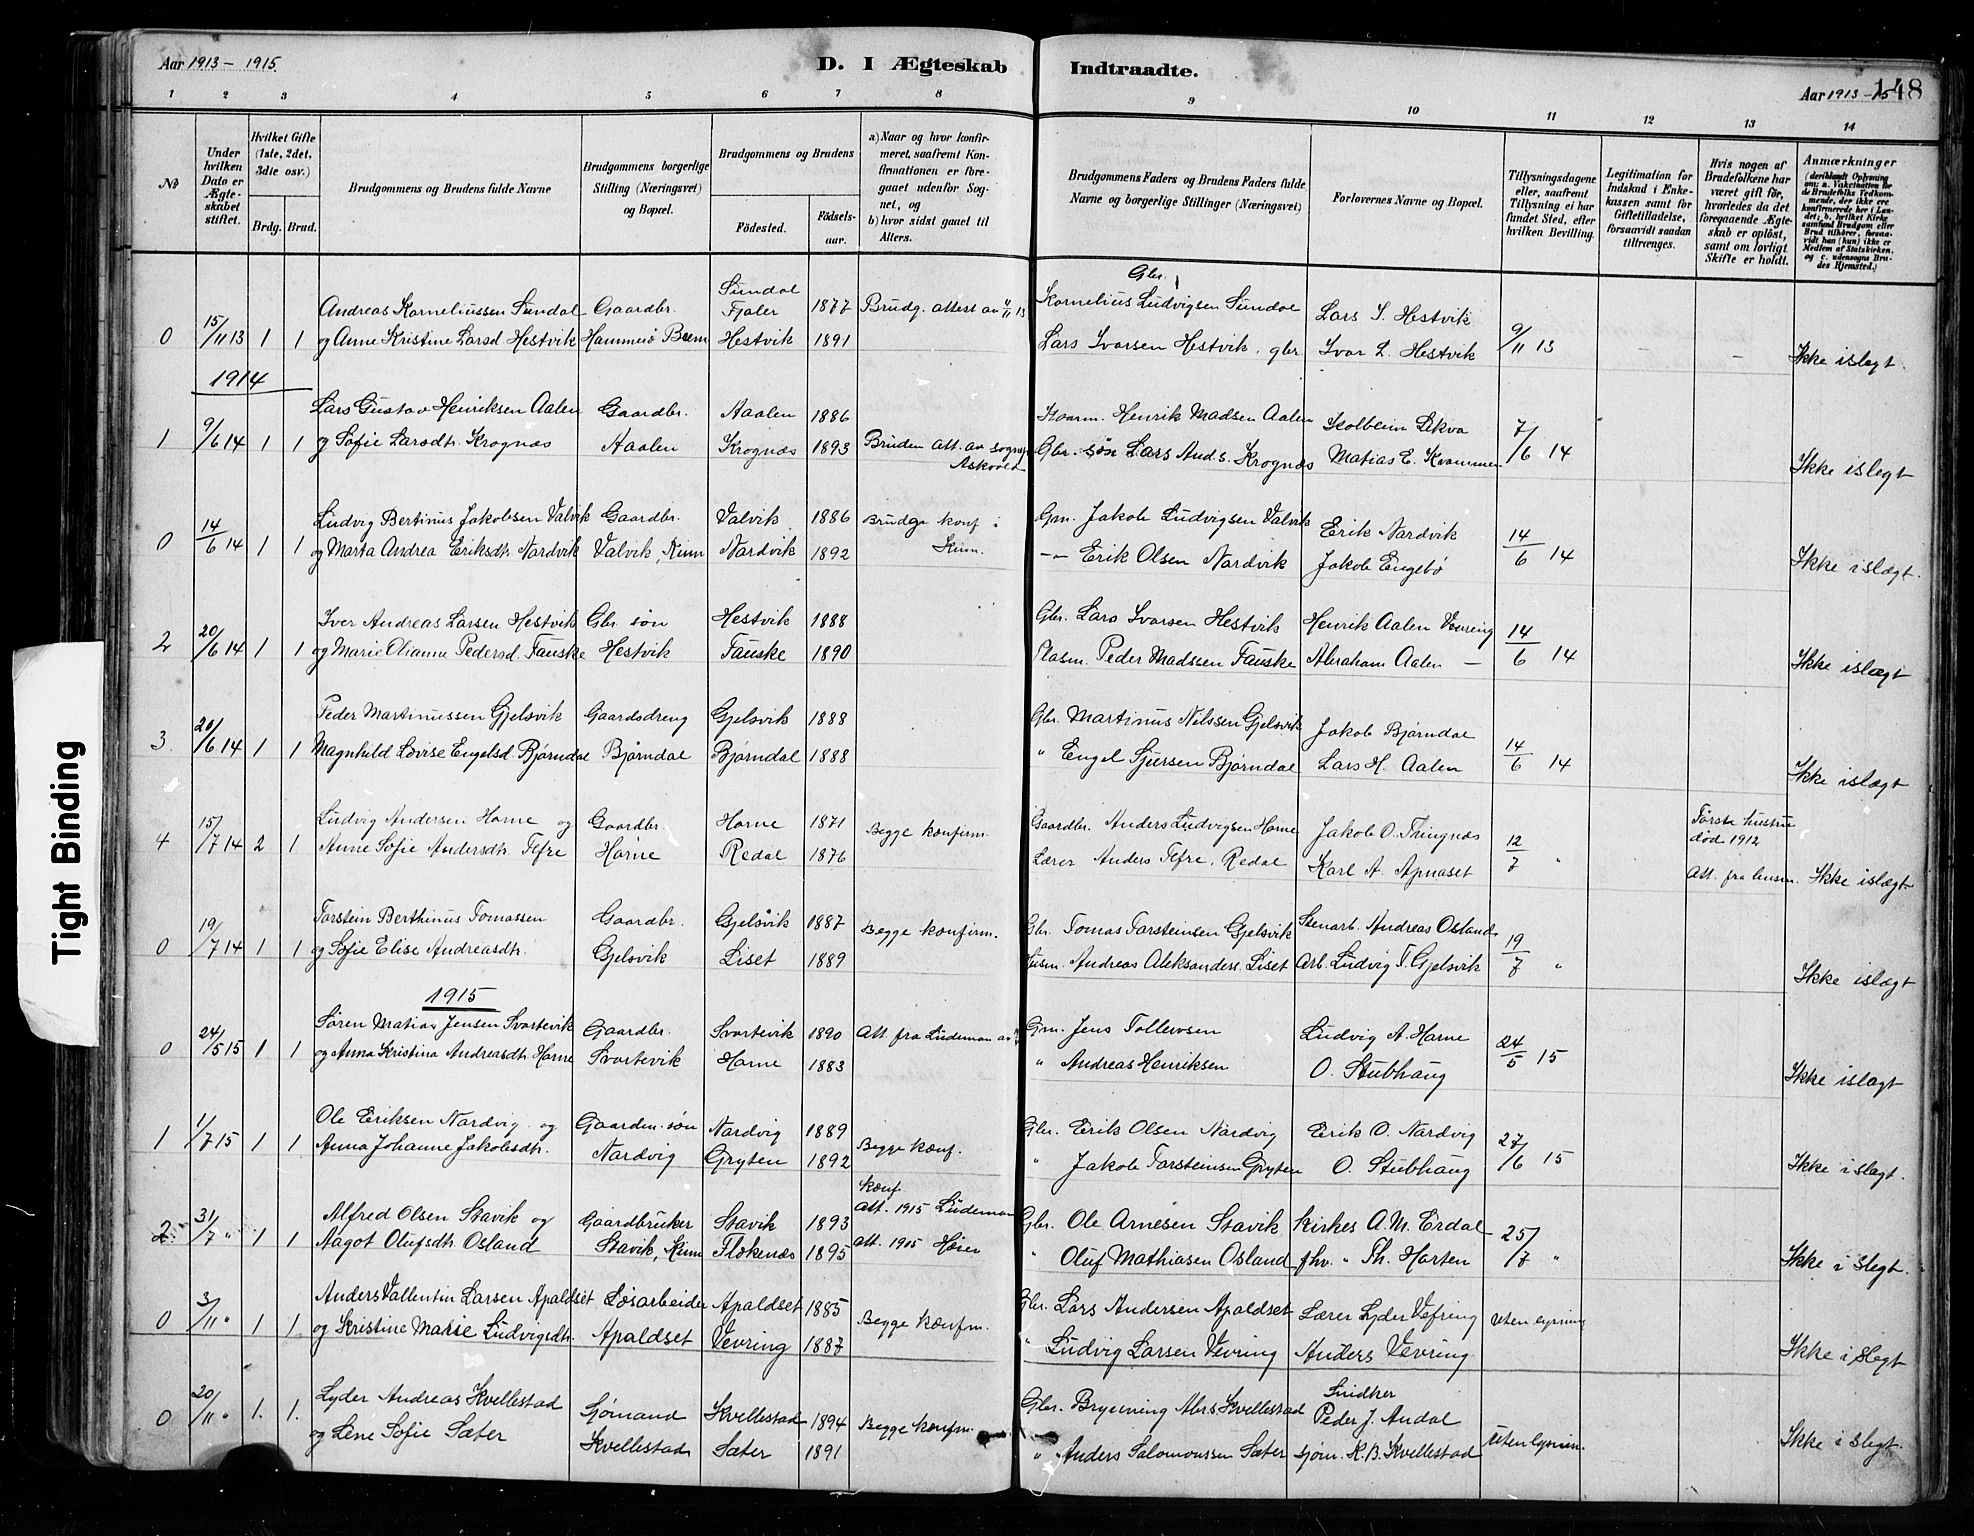 Aar 1913 - 1915
D. I Ægteskab
Indtraadte.
Aar 1913 - 15
148
1 2 3 4 5 6 7 8 9 10 11 12 13 14
No
Under hvilken Dato er Ægteskabet stiftet.
Hvilket Gifte (1ste, 2det, 3die osv.)
Brdg. Brud.
Brudgommens og Brudens fulde Navne
Brudgommens borgerlige Stilling (Næringsvei) og Bopæl.
Brudgommens og Brudens
Fødested.
Fødselsaar.
a) Naar og hvor konfirmeret, saafremt Konfirmationen er foregaaet udenfor Sognet, og
b) hvor sidst gaaet til Alters.
Brudgommens Faders og Brudens Faders fulde Navne og borgerlige Stillinger (Næringsvei)
Forlovernes Navne og Bopæl.
Tillysningsdagene eller, saafremt Tillysning ei har fundet Sted, efter hvilken Bevilling.
Legitimation for Indskud i Enkekassen samt for Giftetilladelse, forsaavidt saadan tiltrænges.
Hvis nogen af Brudefolkene har været gift før, hvorledes da det foregaaende Ægteskab er opløst, samt om lovligt Skifte er holdt.
Anmærkninger (deriblandt Oplysning om: a. Vakcination for de Brudefolks Vedkommende, der ikke ere konfirmerede her i Landet; b. hvilket Kirkesamfund Brudgom eller Brud tilhører, forsaavidt han (hun) ikke er Medlem af Statskirken, og c. udensogns Brudes Hjemsted.)
0 15/11 13 1 1 Andreas Korneliussen Sundal Gaardbr. Sundal Fjaler 1877 Brudg. attest av 4/11 13 Gbr. Kornelius Ludvigsen Sundal Lars I. Hestvik 9/11 13
og Anne Kristine Larsd Hestvik Hammeiø Brem Hestvik 1891 Lars Ivarsen Hestvik. gbr. Ivar L. Hestvik - - Ikke islegt.
1914
1 9/6 14 1 1 Lars Gustav Henriksen Aalen Gaardbr. Aalen 1886 Henrik Madsen Aalen Kolbein Likva 7/6 14
og Sofie Larsdtr. Krognæs Aalen Krognæs 1893 Bruden att. av sognepr. Askvold Gbr. søn Lars And.s. Krognæs Matias E. Kvammen Ikke islegt
0 14/6 14 1 1 Ludvig Bertinus Jakobsen Valvik Gaardbr. Valvik 1886 Brudg. konf i Kinn. Gm. Jakob Ludvigsen Valvik Erik Nardvik 14/6 14
og Marta Andrea Eriksdtr. Nardvik Valvik, Kinn Nardvik 1892 -"- Erik Olsen Nardvik Jakob Engebø Ikke islægt.
2 20/6 14 1 1 Iver Andreas Larsen Hestvik Gbr. søn Hestvik 1888 Gbr. Lars Ivarsen Hestvik Henrik Aalen Vevring 14/6 14
og Marie Olianne Pedersd. Fauske Hestvik Fauske 1890 Plasm. Peder Madssen Fauske Abraham Aalen - Ikke islægt
3. 20/6 14 1 1 Peder Martinussen Gjelsvik Gaardsdreng Gjelsvik 1888 Gbr. Martinus Nilssen Gjelsvik Jakob Bjørndal 14/6 14
Magnhild Lovise Engelsd. Bjørndal Bjørndal Bjørndal 1888 " Engel Sjursen Bjørndal Lars H. Aalen Ikke islægt
4 15/7 14 2 1 Ludvig Andersen Horne og Gaardbr. Horne 1871 Begge konfirm. Gaardbr. Anders Ludvigsen Horne Jakob O. Tingnæs 12/7 " Første hustru død 1912
Anne Sofie Andersdtr. Tefre Horne Redal 1876 Lærer Anders Tefre, Redal Karl A. Apnaset Att. fra lensm. Ikke islægt
0 19/7 14 1 1 Torstein Berthinus Tomassen Gaardbr. Gjelsvik 1887 Begge konfirm. Gbr. Tomas Torsteinsen Gjelsvik Stenarb. Andreas Osland 19/7 "
og Sofie Elise Andreasdtr. Gjelsvik Liset 1889 Husm. Andreas Aleksanders. Liset Arb. Ludvig T. Gjelsvik Ikke islægt
1915
0 24/5 15 1 1 Søren Matias Jensen Svortevik Gaardbr. Svortevik 1890 Att. fra Lüdeman Gm. Jens Tollevsen Ludvig A. Horne 24/5 15
og Anna Kristina Andreasdtr. Horne Svortevik Horne 1883 " Andreas Henriksen O. Stubhaug Ikke islagt
1 1/7 15 1 1 Ole Eriksen Nardvig og Gaardm. søn Nardvig 1889 Begge konf. Gbr. Erik Olsen Nardvig Erik O. Nardvig 27/6 15
Anna Johanne Jakobsdtr. Nardvig Gryten 1892 " Jakob Torsteinsen Gryten O. Stubhaug Ikke i slegt.
2 31/7 " 1 1 Alfred Olsen Stavik og Gaardbruker Stavik 1893 konf att. 1915 Lüdeman Gbr. Ole Arnesen Stavik Kirkes. A.M. Erdal 25/7 "
Aagot Olufsdtr. Osland Stavik, Kinn Flokenæs 1895 att. 1915 " Oluf Mathiasen Osland fhv. " Th. Horten Ikke i slegt.
0 3/11 " 1 1 Anders Vallentin Larsen Apaldset Løsarbeider Apaldset 1885 Begge konfm. Gbr. Lars Andersen Apaldset Lærer Lyder Vefring Uten lysning
og Kristine Marie Ludvigsdtr. Apaldset Vevring 1887 " Ludvig Larsen Vevring Anders Vevring Ikke i slegt
0 20/11 " 1. 1. Lyder Andreas Kvellestad Sjømand Kvellestad 1894 Begge konfm. Gbr. Brynning Abr.s Kvellestad Snidker Peder J. Andal Uten lysnin.
og Lene Sofie Sæter Kvellestad Sæter 1891 " Anders Salomonssen Sæter sjøm. K.B. Kvellestad Ikke i slegt.
Tight Binding